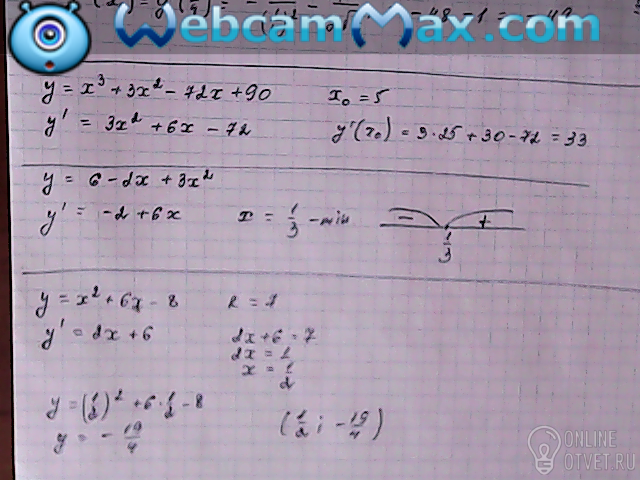 WebcamMax.com
y = x³ + 3x² - 72x + 90 x₀ = 5
y' = 3x² + 6x - 72 y'(x₀) = 3·25 + 30 - 72 = 33
y = 6 - 2x + 3x²
y' = -2 + 6x x = 1/3 - min - +
1/3
y = x² + 6x - 8
y' = 2x + 6 2x + 6 = 7
2x = 1
x = 1/2
y = (1/2)² + 6·1/2 - 8
y = -19/4 (1/2; -19/4)
ONLINE
OTVET.RU